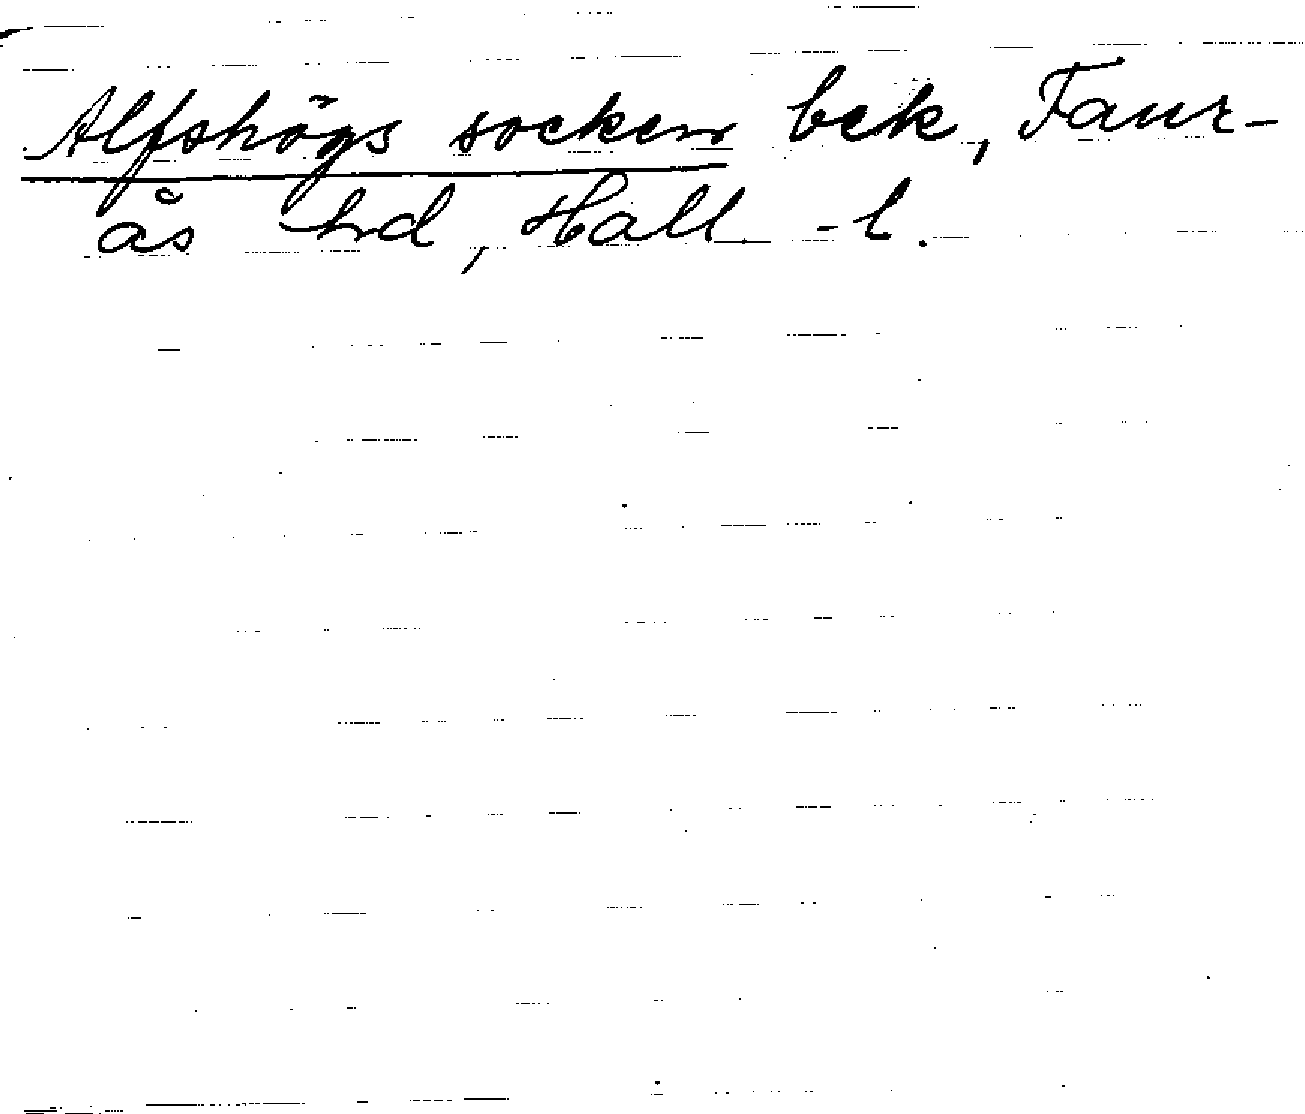 Alfshögs socken bek, Faur-
ås hd, Hall. -l.